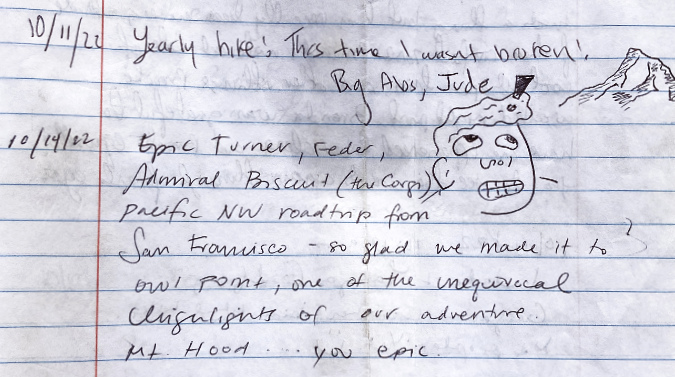 10/11/22 Yearly hike! This time I wasn't broken!
Big Abs, Jude
10/14/22 Epic Turner, Feder,
Admiral Biscuit (the Corgi)
Pacific NW roadtrip from
San Francisco - so glad we made it to
owl point, one of the unequivocal
highlights of our adventure.
Mt. Hood ... you epic.